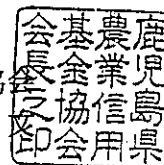 鹿児島県
農業信用
基金協会
会長之印